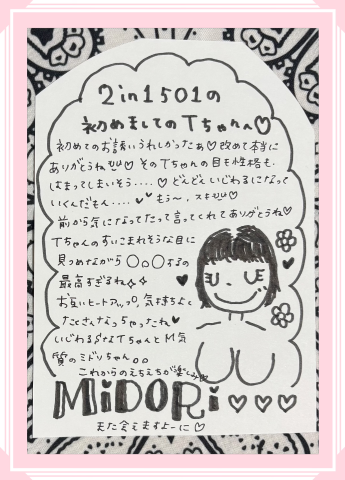 2in1501の
初めましてのTちゃんへ♡
初めてのお誘いうれしかったぁ♡改めて本当に
ありがとうね♡そのTちゃんの目も性格も、
はまってしまいそう....♡どんどんいじわるになって
いくんだもん....♥♥もう〜、スキ♡
前から気になってたって言ってくれてありがとうね♡
Tちゃんのすいこまれそうな目に
見つめながら○○○するの
最高すぎるね✧✧
お互いヒートアップ、気持ちよく
たくさんなっちゃったね♥
いじわるSなTちゃんとM気
質のミドリちゃん。。
これからのえちえちが楽しみ
MiDORi♡♡♡
また会えますよーに♡